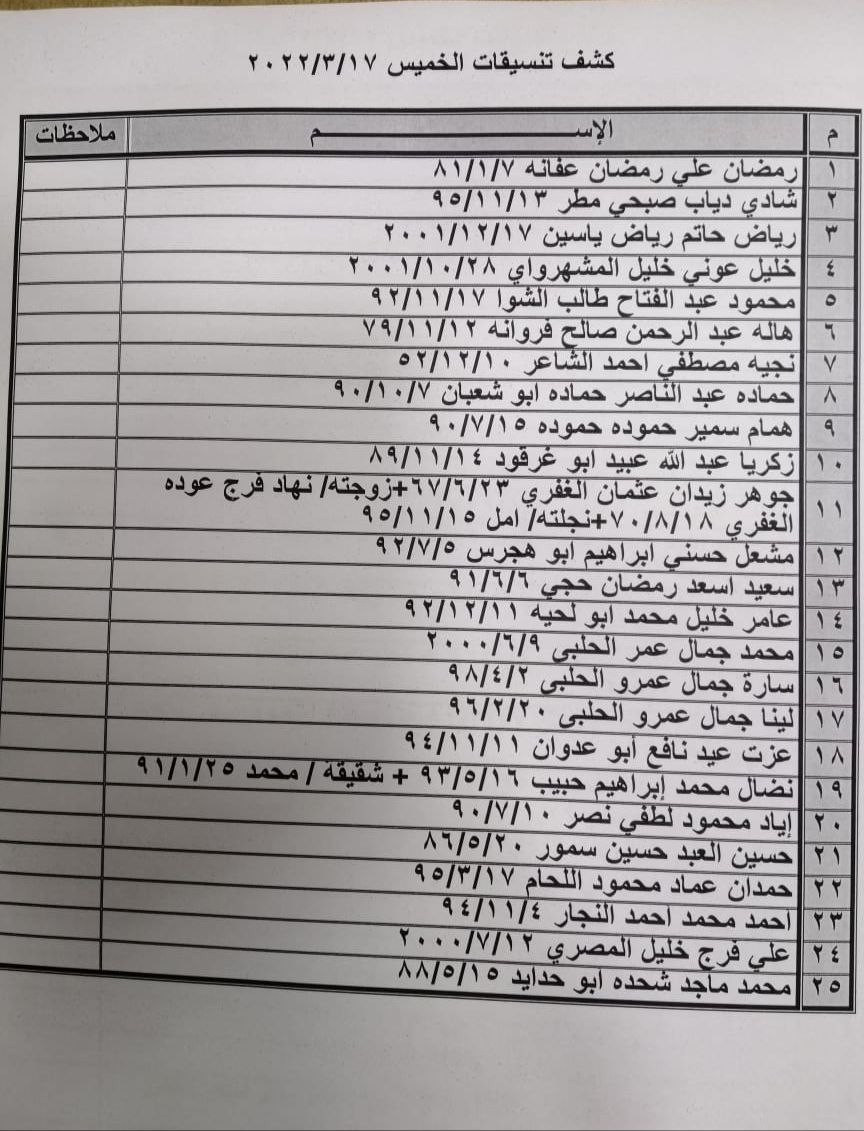 كشف تنسيقات الخميس ٢٠٢٢/٣/١٧
م الإســـــــم ملاحظات
١ رمضان علي رمضان عفانه ٨١/١/٧
٢ شادي دياب صبحي مطر ٩٥/١١/١٣
٣ رياض حاتم رياض ياسين ٢٠٠١/١٢/١٧
٤ خليل عوني خليل المشهرواي ٢٠٠١/١٠/٢٨
٥ محمود عبد الفتاح طالب الشوا ٩٢/١١/١٧
٦ هاله عبد الرحمن صالح فروانه ٧٩/١١/١٢
٧ نجيه مصطفي احمد الشاعر ٥٢/١٢/١٠
٨ حماده عبد الناصر حماده ابو شعبان ٩٠/١٠/٧
٩ همام سمير حموده حموده ٩٠/٧/١٥
١٠ زكريا عبد الله عبيد ابو غرقود ٨٩/١١/١٤
١١ جوهر زيدان عثمان الغفري ٦٧/٦/٢٣+زوجته/ نهاد فرج عوده
الغفري ٧٠/٨/١٨+نجلته/ امل ٩٥/١١/١٥
١٢ مشعل حسني ابراهيم ابو هجرس ٩٢/٧/٥
١٣ سعيد اسعد رمضان حجي ٩١/٦/٦
١٤ عامر خليل محمد ابو لحيه ٩٢/١٢/١١
١٥ محمد جمال عمر الحلبي ٢٠٠٠/٦/٩
١٦ سارة جمال عمرو الحلبي ٩٨/٤/٢
١٧ لينا جمال عمرو الحلبي ٩٦/٢/٢٠
١٨ عزت عيد نافع أبو عدوان ٩٤/١١/١١
١٩ نضال محمد إبراهيم حبيب ٩٣/٥/١٦ + شقيقة / محمد ٩١/١/٢٥
٢٠ إياد محمود لطفي نصر ٩٠/٧/١٠
٢١ حسين العبد حسين سمور ٨٦/٥/٢٠
٢٢ حمدان عماد محمود اللحام ٩٥/٣/١٧
٢٣ احمد محمد احمد النجار ٩٤/١١/٤
٢٤ علي فرج خليل المصري ٢٠٠٠/٧/١٢
٢٥ محمد ماجد شحده ابو حدايد ٨٨/٥/١٥